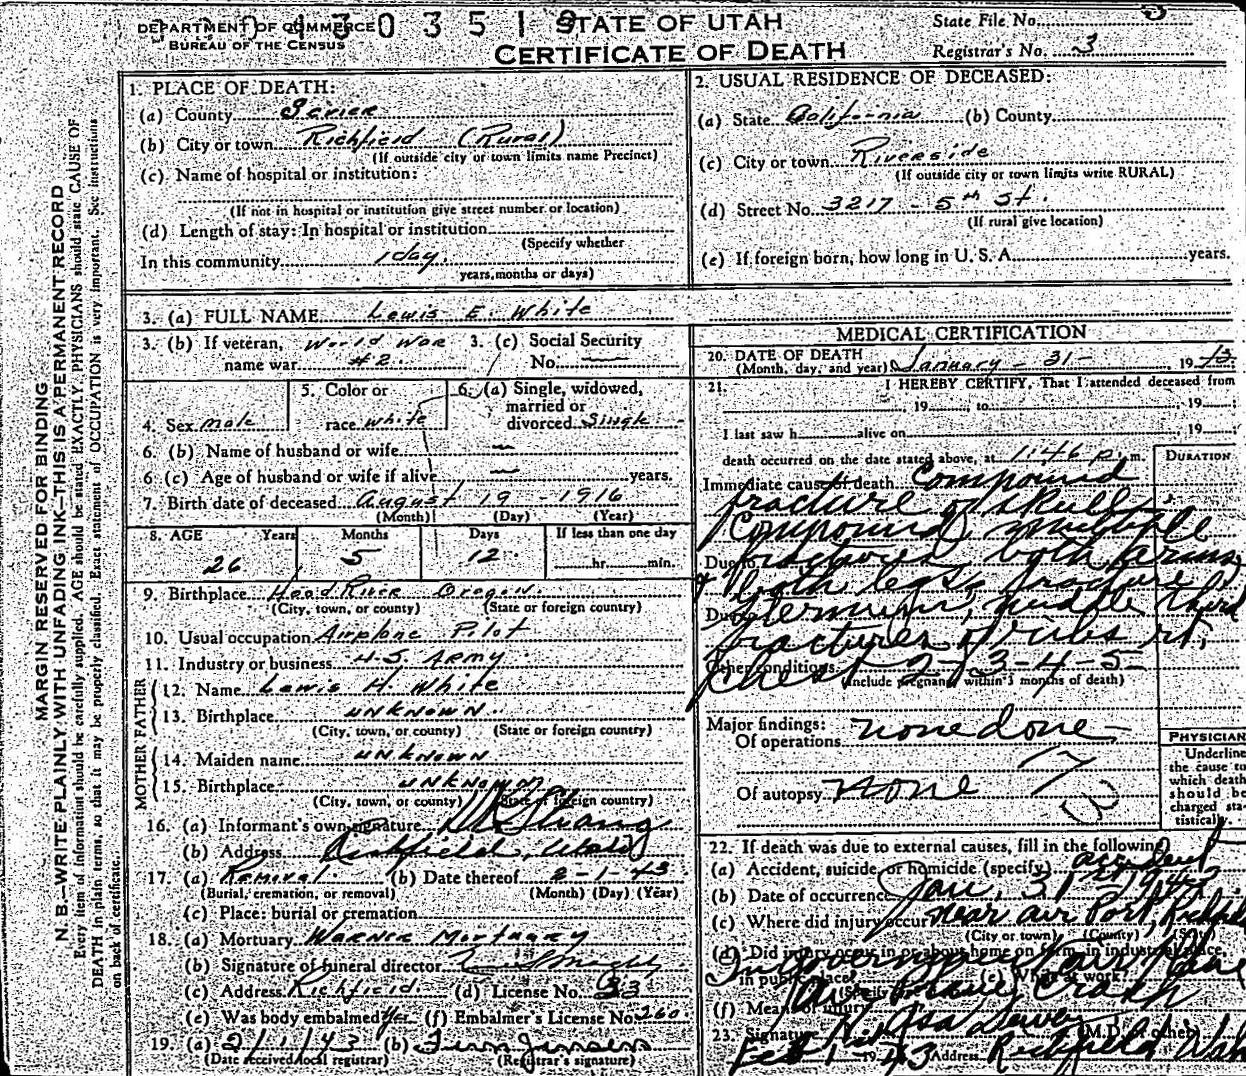 DEPARTMENT OF COMMERCE
BUREAU OF THE CENSUS
STATE OF UTAH
CERTIFICATE OF DEATH
State File No. 3
Registrar's No. 3
MARGIN RESERVED FOR BINDING
N. B.—WRITE PLAINLY WITH UNFADING INK—THIS IS A PERMANENT RECORD
Every item of information should be carefully supplied. AGE should be stated EXACTLY. PHYSICIANS should state CAUSE OF
DEATH in plain terms, so that it may be properly classified. Exact statement of OCCUPATION is very important. See instructions
on back of certificate.
1. PLACE OF DEATH:
(a) County Sevier
(b) City or town Richfield (Rural)
(If outside city or town limits name Precinct)
(c) Name of hospital or institution:
(If not in hospital or institution give street number or location)
(d) Length of stay: In hospital or institution
(Specify whether
In this community 1 day
years, months or days)
2. USUAL RESIDENCE OF DECEASED:
(a) State California (b) County
(c) City or town Riverside
(If outside city or town limits write RURAL)
(d) Street No. 3217 - 5th St.
(If rural give location)
(e) If foreign born, how long in U. S. A. years.
3. (a) FULL NAME Lewis E. White
3. (b) If veteran, name war World War #2
3. (c) Social Security No. —
4. Sex male
5. Color or race white
6. (a) Single, widowed, married or divorced Single
6. (b) Name of husband or wife —
6 (c) Age of husband or wife if alive — years.
7. Birth date of deceased August 19 - 1916
(Month) (Day) (Year)
8. AGE Years Months Days If less than one day
26 5 12 hr. min.
9. Birthplace Hood River Oregon
(City, town, or county) (State or foreign country)
10. Usual occupation Airplane Pilot
11. Industry or business U.S. Army
FATHER
12. Name Lewis H. White
13. Birthplace unknown
(City, town, or county) (State or foreign country)
MOTHER
14. Maiden name unknown
15. Birthplace unknown
(City, town, or county) (State or foreign country)
16. (a) Informant's own signature Strang
(b) Address Richfield, Utah
17. (a) Removal (b) Date thereof 2-1-43
(Burial, cremation, or removal) (Month) (Day) (Year)
(c) Place: burial or cremation
18. (a) Mortuary Warner Mortuary
(b) Signature of funeral director
(c) Address Richfield (d) License No. 33
(e) Was body embalmed Yes (f) Embalmer's License No. 260
19. (a) 2/1/43 (b) Jensen
(Date received local registrar) (Registrar's signature)
MEDICAL CERTIFICATION
20. DATE OF DEATH
(Month, day, and year) January - 31 - 19 43
21. I HEREBY CERTIFY, That I attended deceased from
, 19 , to , 19 ;
I last saw h alive on , 19 ;
death occurred on the date stated above, at 1:46 p. m.
DURATION
Immediate cause of death Compound
fracture of skull,
Compound multiple
Due to fractures both arms
& both legs, fracture
Due to femur, middle third
fractures of ribs rt,
Other conditions chest 2-3-4-5-
(Include pregnancy within 3 months of death)
Major findings:
Of operations none done
Of autopsy none
PHYSICIAN
Underline
the cause to
which death
should be
charged sta-
tistically.
22. If death was due to external causes, fill in the following:
(a) Accident, suicide, or homicide (specify) accident
(b) Date of occurrence Jan, 31
(c) Where did injury occur near air Port,
(City or town) (County) (State)
(d) Did injury occur in or about home, on farm, in industrial place,
in public place? (e) While at work?
(f) Means of injury air plane crash
23. Signature (M.D. or other)
Feb 1- 19 43 Address Richfield Utah